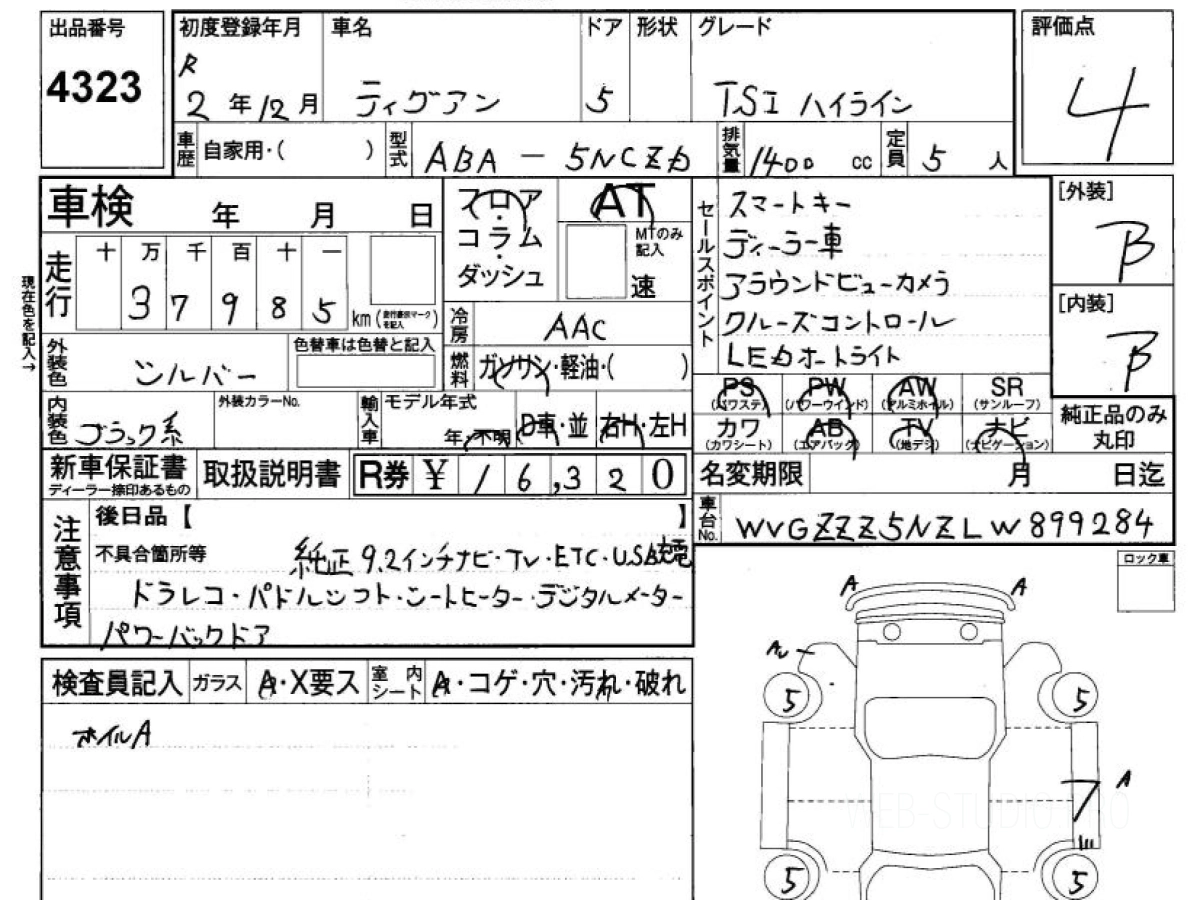 出品番号
4323
初度登録年月
R
2年12月
車名
ティグアン
ドア
5
形状
グレード
TSI ハイライン
評価点
4
車歴 自家用・( )
型式 ABA - 5NCZD
排気量 1400 cc
定員 5 人
車検 年 月 日
フロア
コラム
ダッシュ
AT
MTのみ記入
速
セールスポイント
スマートキー
ディーラー車
アラウンドビューカメラ
クルーズコントロール
LEDオートライト
[外装]
B
[内装]
B
現在色を記入→
走行
十 万 千 百 十 一
3 7 9 8 5 km
冷房 AAC
燃料 ガソリン・軽油・( )
外装色 シルバー
色替車は色替と記入
内装色 ブラック系
外装カラーNo.
輸入車
モデル年式
年・不明
D車・並
右H・左H
PS (パワステ)
PW (パワーウインド)
AW (アルミホイル)
SR (サンルーフ)
カワ (カワシート)
AB (エアバック)
TV (地デジ)
ナビ (ナビゲーション)
純正品のみ
丸印
新車保証書
ディーラー捺印あるもの
取扱説明書
R券 ¥ 16,320
名変期限 月 日迄
車台No. WVGZZZ5NZLW899284
注意事項
後日品【 】
不具合箇所等
純正9.2インチナビ・TV・ETC・USB充電
ドラレコ・パドルシフト・シートヒーター・デジタルメーター
パワーバックドア
ロック車
検査員記入
ガラス A・X要ス
室内シート A・コゲ・穴・汚れ・破れ
ホイルA
A A
5 5
A
5 5
WEB-STUDIO.PRO